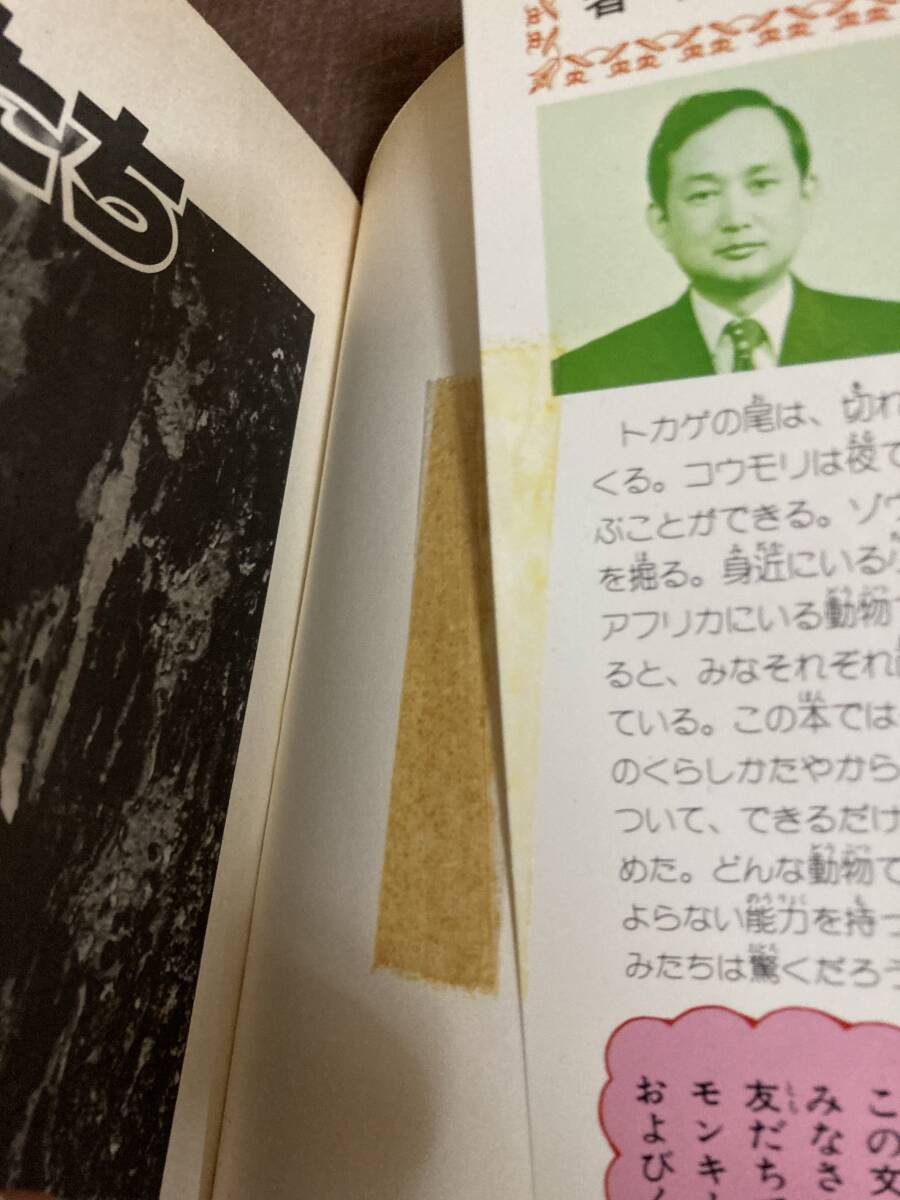 たち
者
トカゲの尾は、切れ
くる。コウモリは夜で
ぶことができる。ゾウ
を掘る。身近にいる小
アフリカにいる動物
ると、みなそれぞれ
ている。この本では
のくらしかたやから
ついて、できるだけ
めた。どんな動物で
よらない能力を持っ
みたちは驚くだろう
この文
みなさ
友だち
モンキ
および